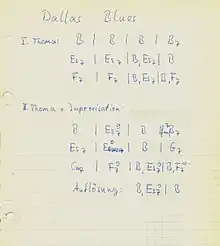 Dallas Blues
I. Thema: B | B | B | B₇
Es₇ | Es₇ | B, Es₇ | B
F₇ | F₇ | B, Es₇ | B, F₇
II. Thema + Improvisation
B | Es⁰₇ | B |
Es₇ | | B | G₇
Cm₇ | F⁰₇ | B, Es⁰₇ | B, F₇
Auflösung: B, Es⁰₇ | B